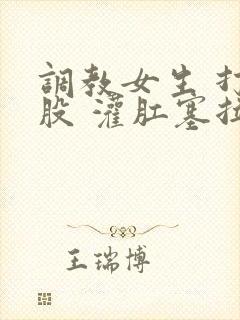 調教女生 打
股 灌肛塞拉
王瑞博